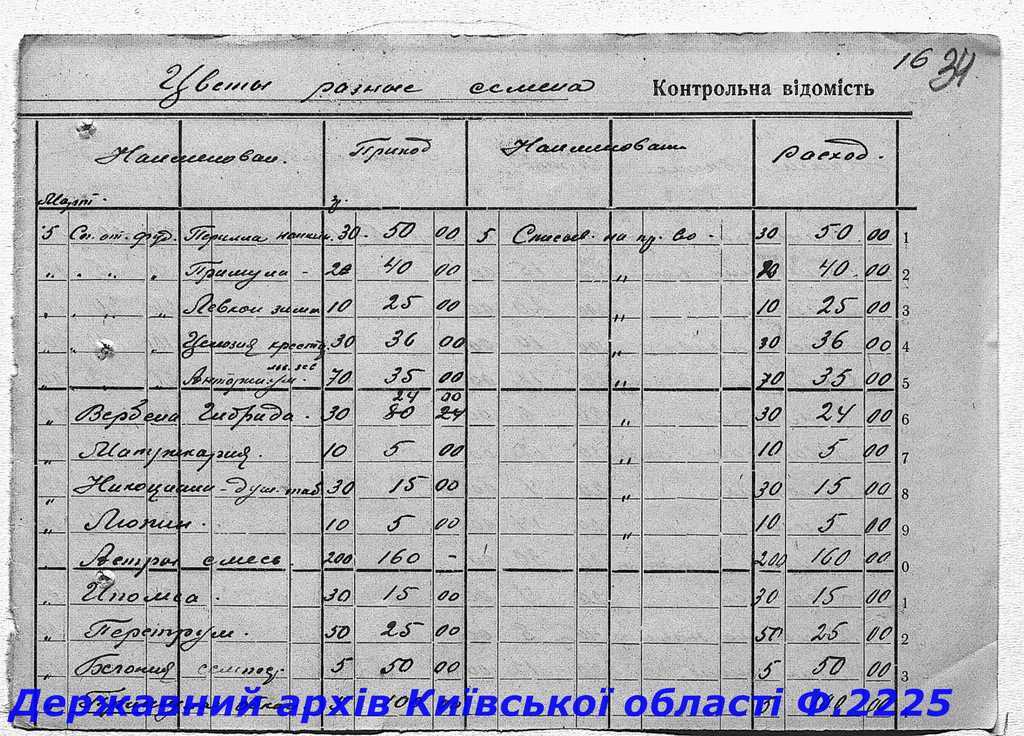 16 34
Цветы разные семена Контрольна відомість
Наименован. Приход Наименован Расход.
Март. г.
5 Сч. от. фуд. Перилла нанкин. 30. 50 00 5 Списыв. на пр. во. 30 50 00 1
„ „ „ „ Примула - 20 40 00 „ 20 40 00 2
„ „ „ „ Левкои зимн 10 25 00 „ 10 25 00 3
„ „ „ 30 36 00 „ 30 36 00 4
„ „ „ 70 35 00 „ 70 35 00 5
24 00
„ Вербена Гибрида. 30 80 24 „ 30 24 00 6
„ 10 5 00 „ 10 5 00 7
„ Никоциани - душ. таб. 30 15 00 „ 30 15 00 8
„ Люпин. 10 5 00 „ 10 5 00 9
„ Астры смесь. 200 160 - 200 160 00 0
„ Ипомеа. 30 15 00 30 15 00 1
„ Перетрум. 50 25 00 50 25 00 2
„ Бегония семпер. 5 50 00 5 50 00 3
Державний архів Київської області Ф.2225